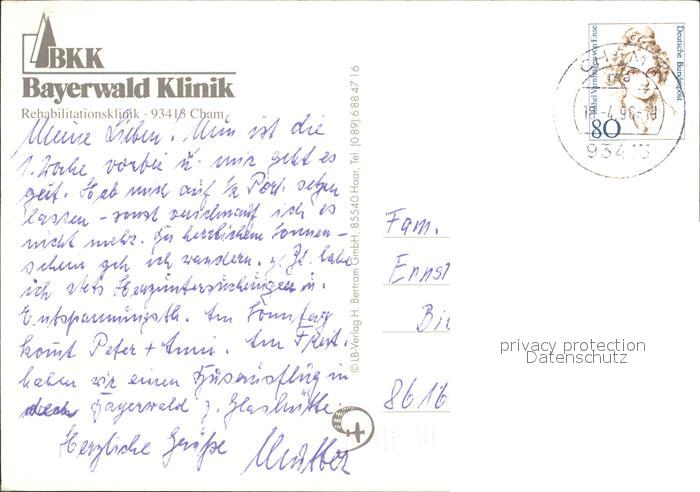 BKK
Bayerwald Klinik
Rehabilitationsklinik · 93413 Cham
Meine Lieben. Nun ist die
1. Woche vorbei u. mir geht es
gut. Hab mich auf 1/2 Port. setzen
lassen - sonst verschnauf ich es
nicht mehr. Bei herrlichem Sonnen-
schein geh ich wandern. z. Zt. habe
ich stets Herzuntersuchungen u.
Entspannungsth. Am Sonntag
kommt Peter + Anni. Am Freit.
haben wir einen Busausflug in
den Bayerwald z. Glashütte.
Herzliche Grüße
Mutter
© LB-Verlag H. Bertram GmbH, 85540 Haar, Tel. (0 89) 6 88 47 16
Deutsche Bundespost
80
CHAM
93413
Fam.
Ernst
Bi
8616
privacy protection
Datenschutz